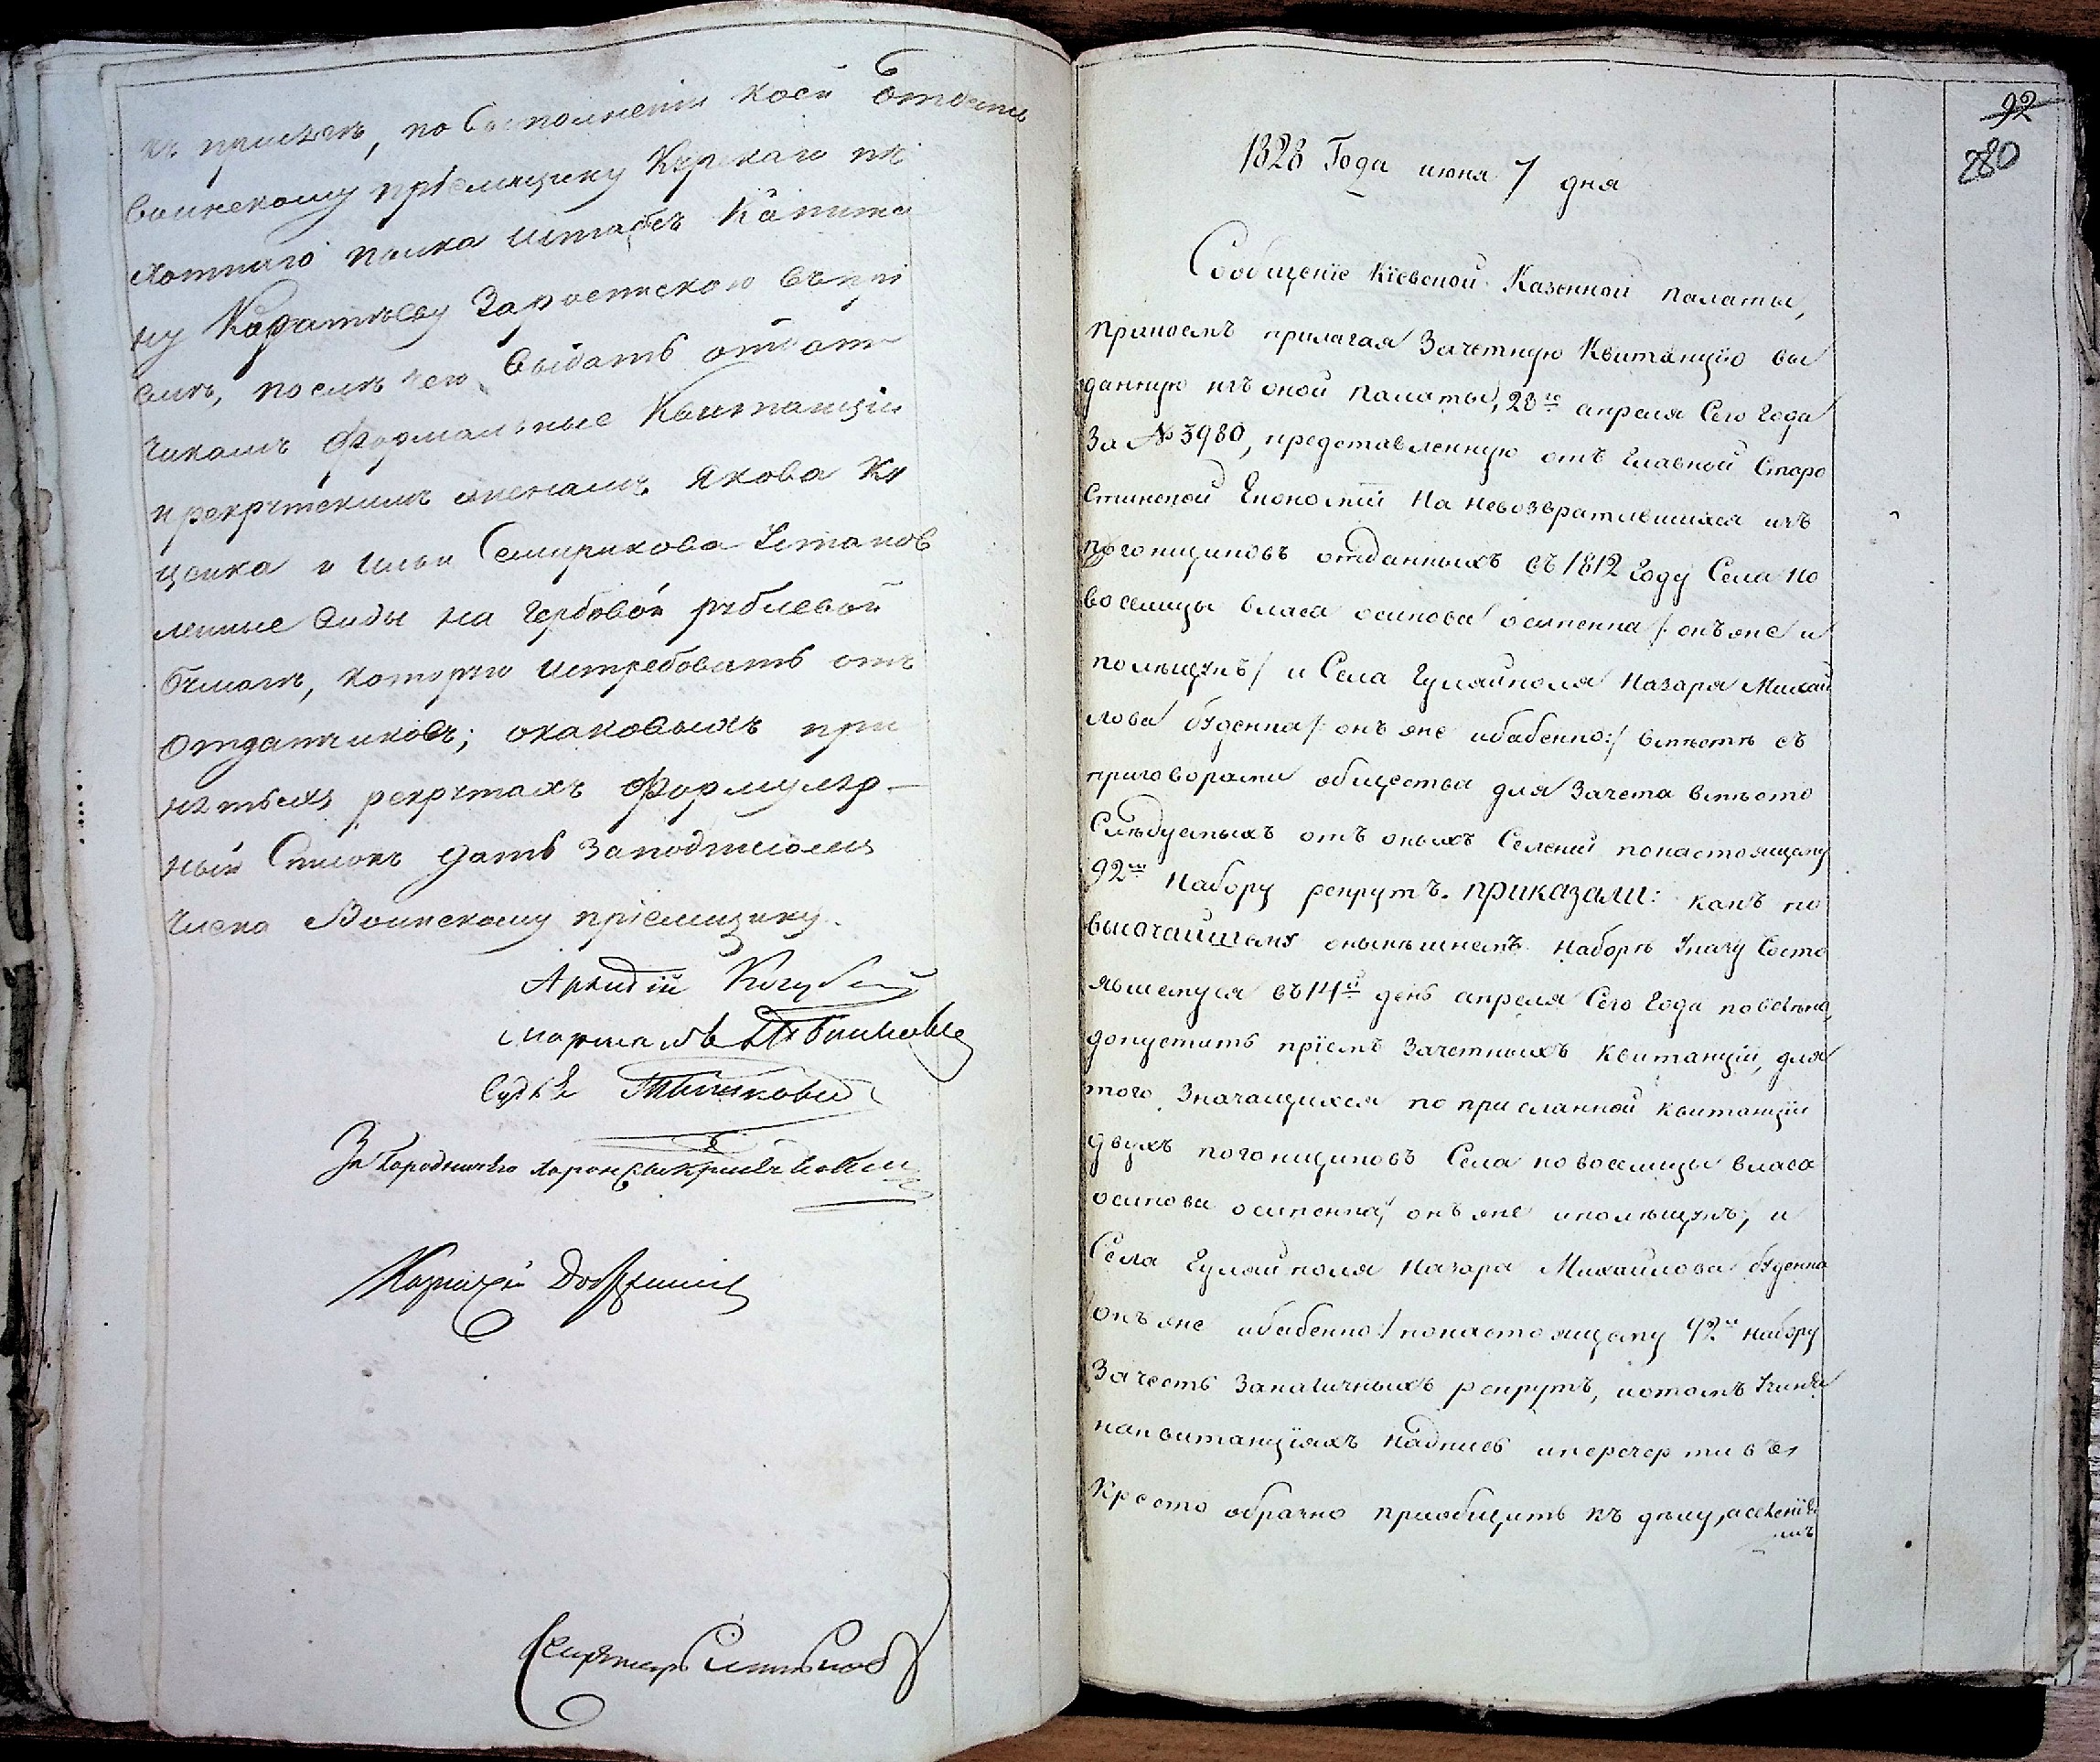 къ присягѣ, по Высполненіи коей Отдать
воинскому пріемщику Курскаго пѣ
хотнаго полка Штабсъ Капита
ну Каратѣеву Заросписскою въкни
гѣ, послѣ чего выдать отдат
чикамъ Формальные Квитанціи
крекрутскимъ имянамъ Якова
ценка и Ильи Семирикова Установ
ленные виды на Гербовой рублевой
бумагѣ, которую истребовать отъ
Отдатчиковъ; окаковыхъ при
нятыхъ рекрутахъ Формуляр-
ный Списокъ дать Заподписомъ
Члена Воинскому пріемщику.
Аркадій Кочубей
маршалъ
Судья
За Городничаго
Казначей
Секретарь
92
280
1828 Года июня 7 дня
Сообщеніе Кіевской Казенной палаты,
прикоемъ прилагая Зачетную Квитанцію вы
данную изъ оной палаты, 28го апреля Сего Года
За № 3980, представленную отъ Главной Старо
стинской Економіи На невозвратившихся изъ
погонщиковъ отданныхъ въ 1812 Году Села но
воселицы власа осипова осипенка /: онъ же и
полищукъ / и Села Гуляйполя Назара Михай
лова буденка /: онъ же ибабенко:/ вместѣ съ
приговорами общества для Зачета вмѣсто
Слѣдуемыхъ отъ оныхъ Селеній понастоящему
92му Набору рекрутъ. приказали: какъ по
высочайшему онынѣшнемъ наборѣ Указу Состо
явшемуся въ 14й день апреля Сего Года повелѣно,
допустить пріемъ Зачетныхъ Квитанцій, для
того Значащихся по присланной квитанціи
двухъ погонщиковъ Села новоселицы власа
осипова осипенка, онъ же иполищукъ, и
Села Гуляйполя Назара Михайлова буденка
онъ же ибабенко:/ понастоящему 92му набору
Зачесть Заналичныхъ рекрутъ, иотомъ Учиня
наквитанціяхъ надпись иперечертивъ ея
Кресто образно приобщить къ дѣлу,